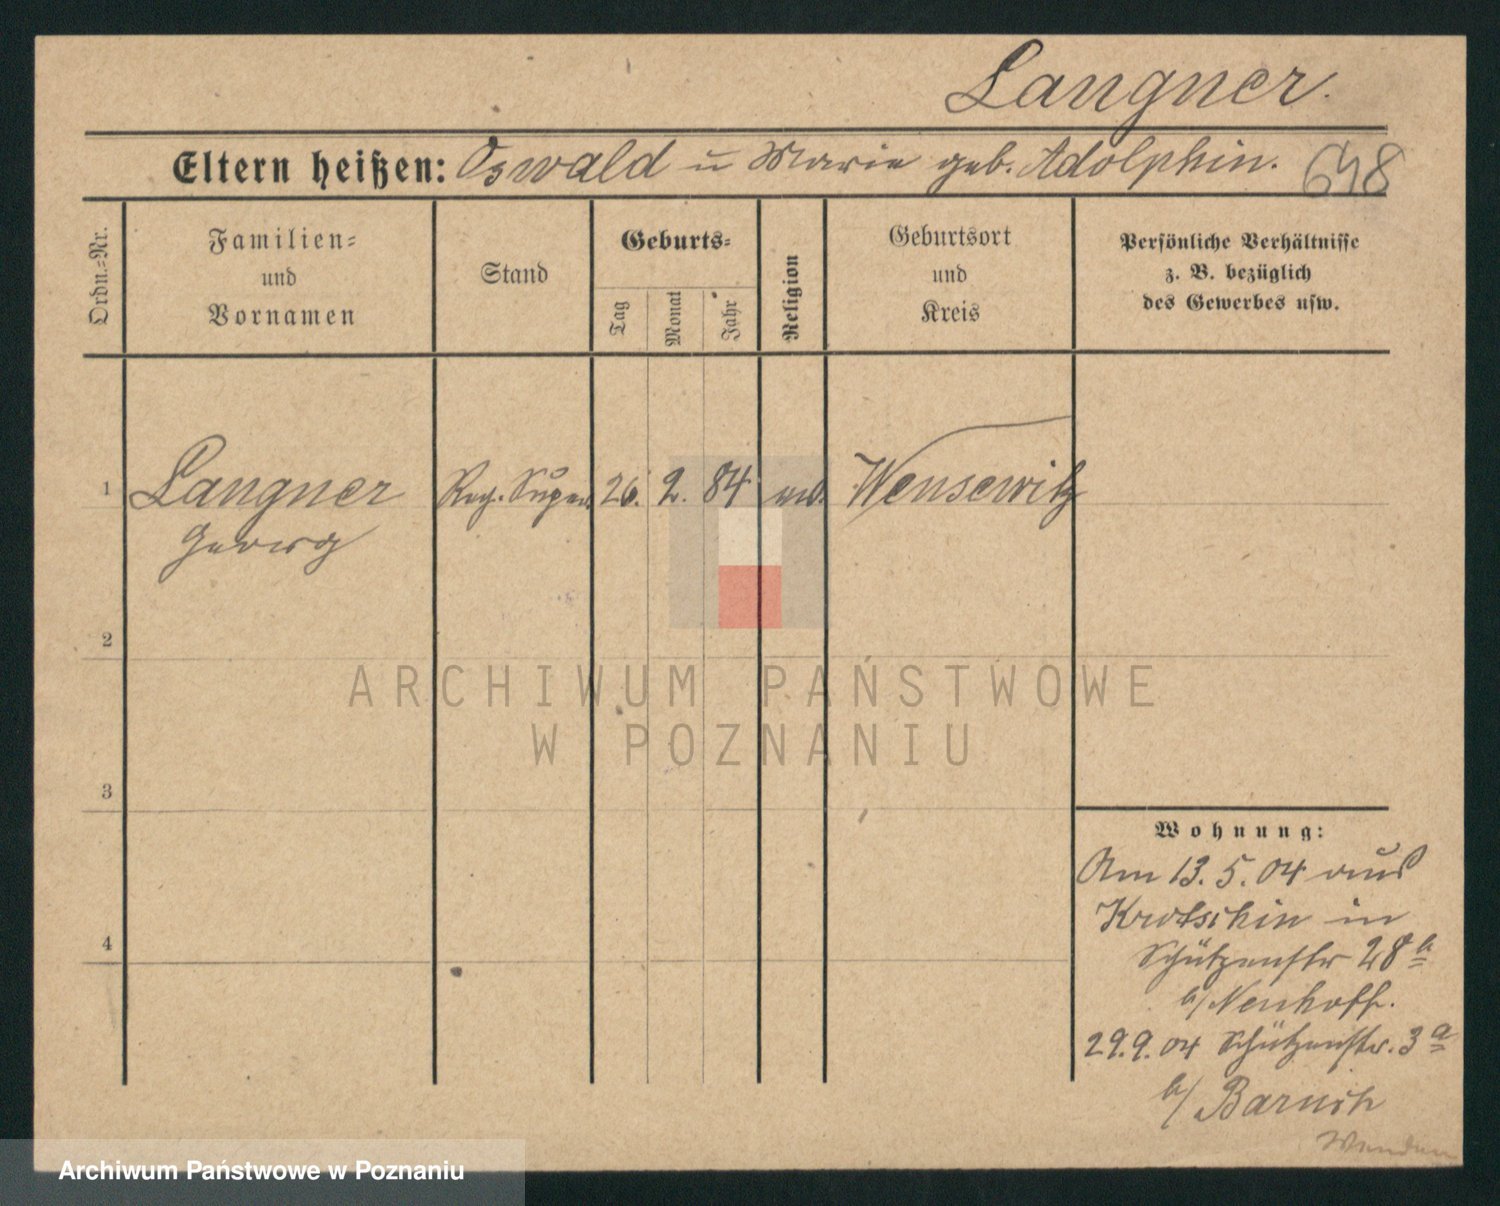 Langner.
Eltern heißen: Oswald u Marie geb. Adolphin. 648
Ordn.-Nr.
Familien-
und
Vornamen
Stand
Geburts-
Tag
Monat
Jahr
Religion
Geburtsort
und
Kreis
Persönliche Verhältnisse
z. B. bezüglich
des Gewerbes usw.
1 Langner Reg. Super. 26. 2. 84
Georg
2
3
4
Wohnung:
Am 13. 5. 04 aus
Krotschin in
Schützenstr 28a
b/ Neuhoff.
29.9.04 Schützenstr. 3a
b/ Baruch
Wenden
ARCHIWUM PAŃSTWOWE
W POZNANIU
Archiwum Państwowe w Poznaniu